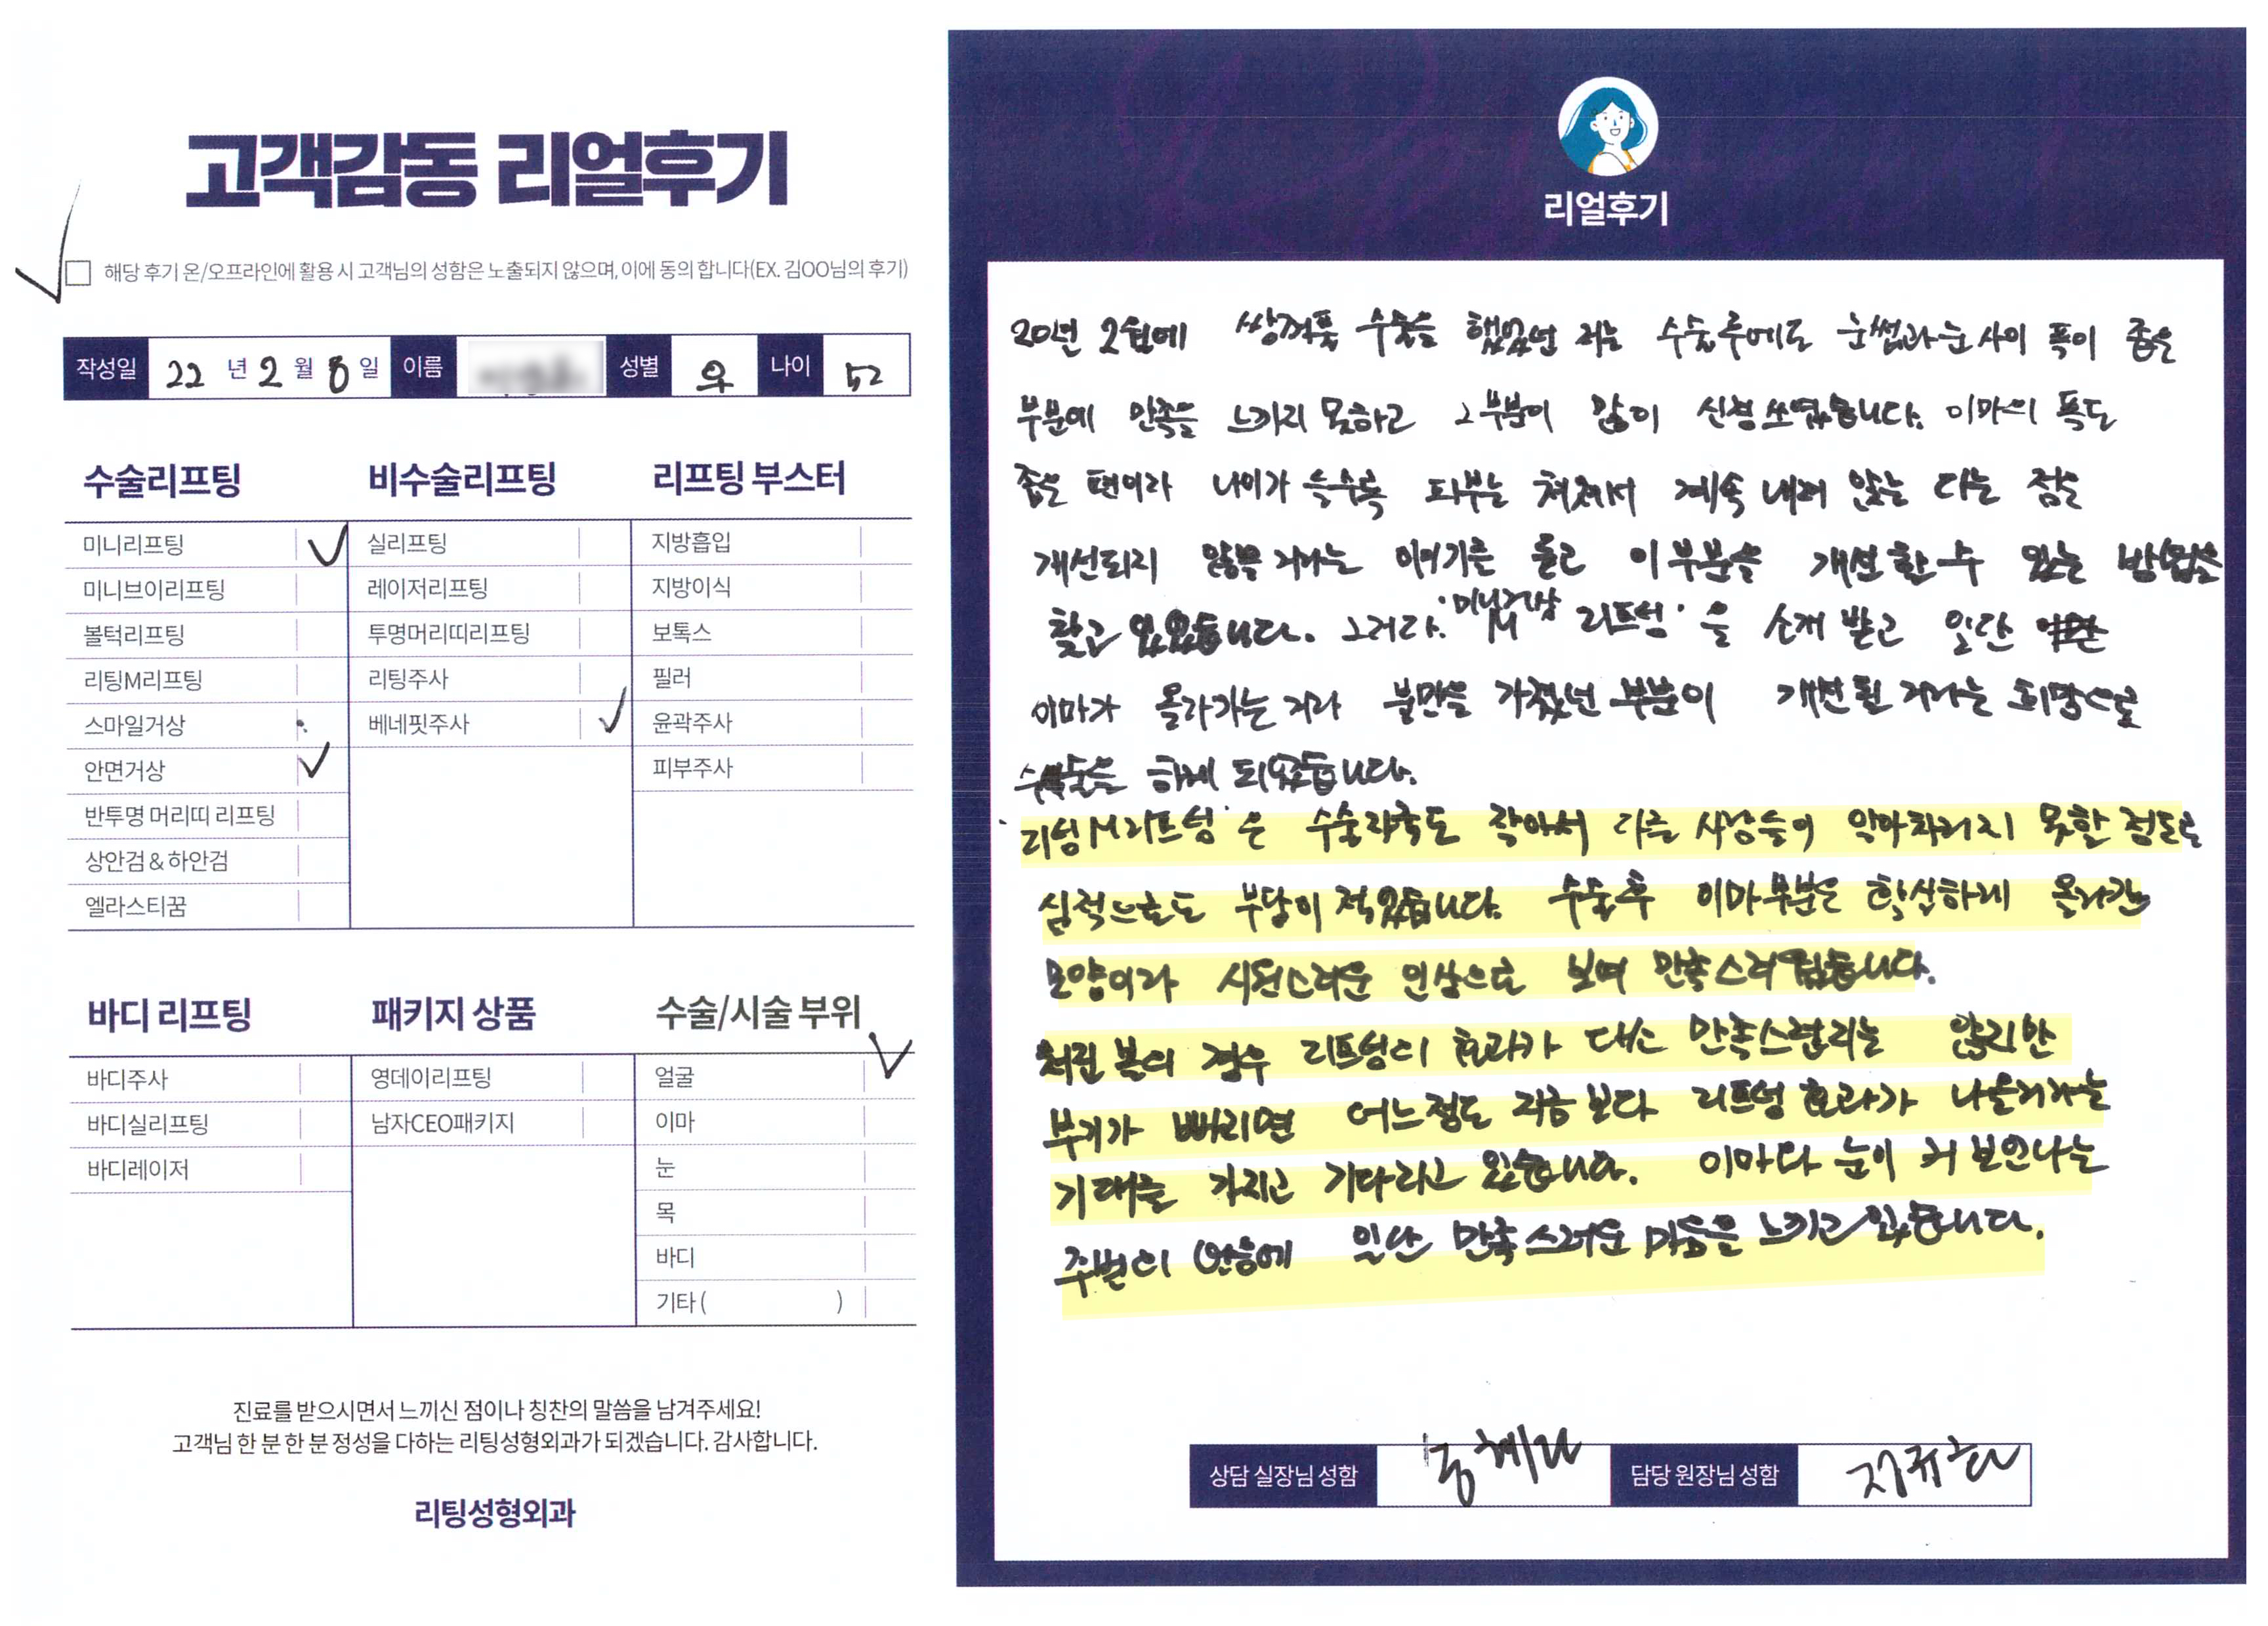 고객감동 리얼후기
해당 후기 온/오프라인에 활용 시 고객님의 성함은 노출되지 않으며, 이에 동의 합니다(EX. 김OO님의 후기)
작성일 22 년 2 월 8 일 이름 성별 여 나이 52
수술리프팅
미니리프팅
미니브이리프팅
볼턱리프팅
리팅M리프팅
스마일거상
안면거상
반투명 머리띠 리프팅
상안검 & 하안검
엘라스티꿈
비수술리프팅
실리프팅
레이저리프팅
투명머리띠리프팅
리팅주사
베네핏주사
리프팅 부스터
지방흡입
지방이식
보톡스
필러
윤곽주사
피부주사
바디 리프팅
바디주사
바디실리프팅
바디레이저
패키지 상품
영데이리프팅
남자CEO패키지
수술/시술 부위
얼굴
이마
눈
목
바디
기타 ( )
진료를 받으시면서 느끼신 점이나 칭찬의 말씀을 남겨주세요!
고객님 한 분 한 분 정성을 다하는 리팅성형외과가 되겠습니다. 감사합니다.
리팅성형외과
리얼후기
20년 2월에 쌍꺼풀 수술을 했었던 저는 수술후에도 눈썹과 눈 사이 폭이 좁은
부분에 만족을 느끼지 못하고 그부분이 많이 신경쓰였습니다. 이마의 폭도
좁은 편이라 나이가 들수록 피부는 쳐져서 계속 내려 앉는 다는 점은
개선되지 않을 거라는 이야기를 듣고 이 부분을 개선 할 수 있는 방법을
찾고 있었습니다. 그러다. '미니거상 리프팅' 을 소개 받고 일단
이마가 올라가는 거라 불만을 가졌던 부분이 개선될 거라는 희망으로
수술을 하게 되었습니다.
'리팅M리프팅'은 수술자국도 작아서 다른 사람들이 알아차리지 못할 정도로
심적으로도 부담이 적었습니다. 수술후 이마부분은 확실하게 올라간
모양이라 시원스러운 인상으로 보여 만족스러웠습니다.
처진 볼의 경우 리프팅의 효과가 대단 만족스럽지는 않지만
부기가 빠지면 어느정도 지금 보다 리프팅 효과가 나올거라는
기대를 가지고 기다리고 있습니다. 이마다 눈이 커 보인다는
주변의 반응에 일단 만족스러운 마음을 느끼고 있습니다.
상담 실장님 성함 담당 원장님 성함